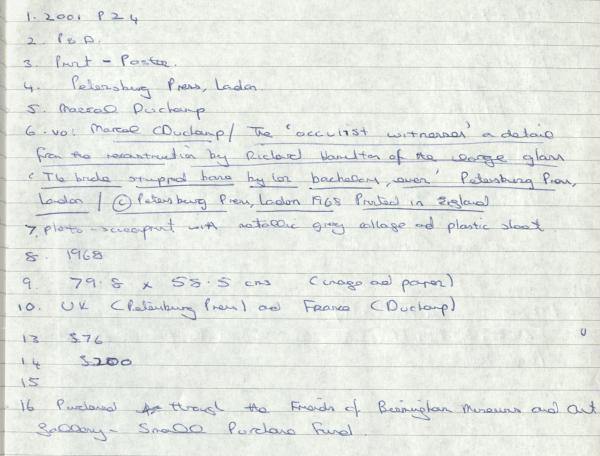 1. 2001 P24
2. P&D.
3 Print - Poster.
4. Petersburg Press, London
5. Marcel Duchamp
6. vo: Marcel Duchamp / The 'occulist witnesses' a detail
from the reconstruction by Richard Hamilton of the large glass
'The bride stripped bare by her bachelors, even' Petersburg Press,
London / © Petersburg Press, London 1968 Printed in England
7. photo-screenprint with metallic grey collage and plastic sheet
8. 1968
9 79.8 x 55.5 cms (image and paper)
10. UK (Petersburg Press) and France (Duchamp)
13 S76
14 $200
15
16 Purchased through the Friends of Birmingham Museums and Art
Gallery - Small Purchase Fund.